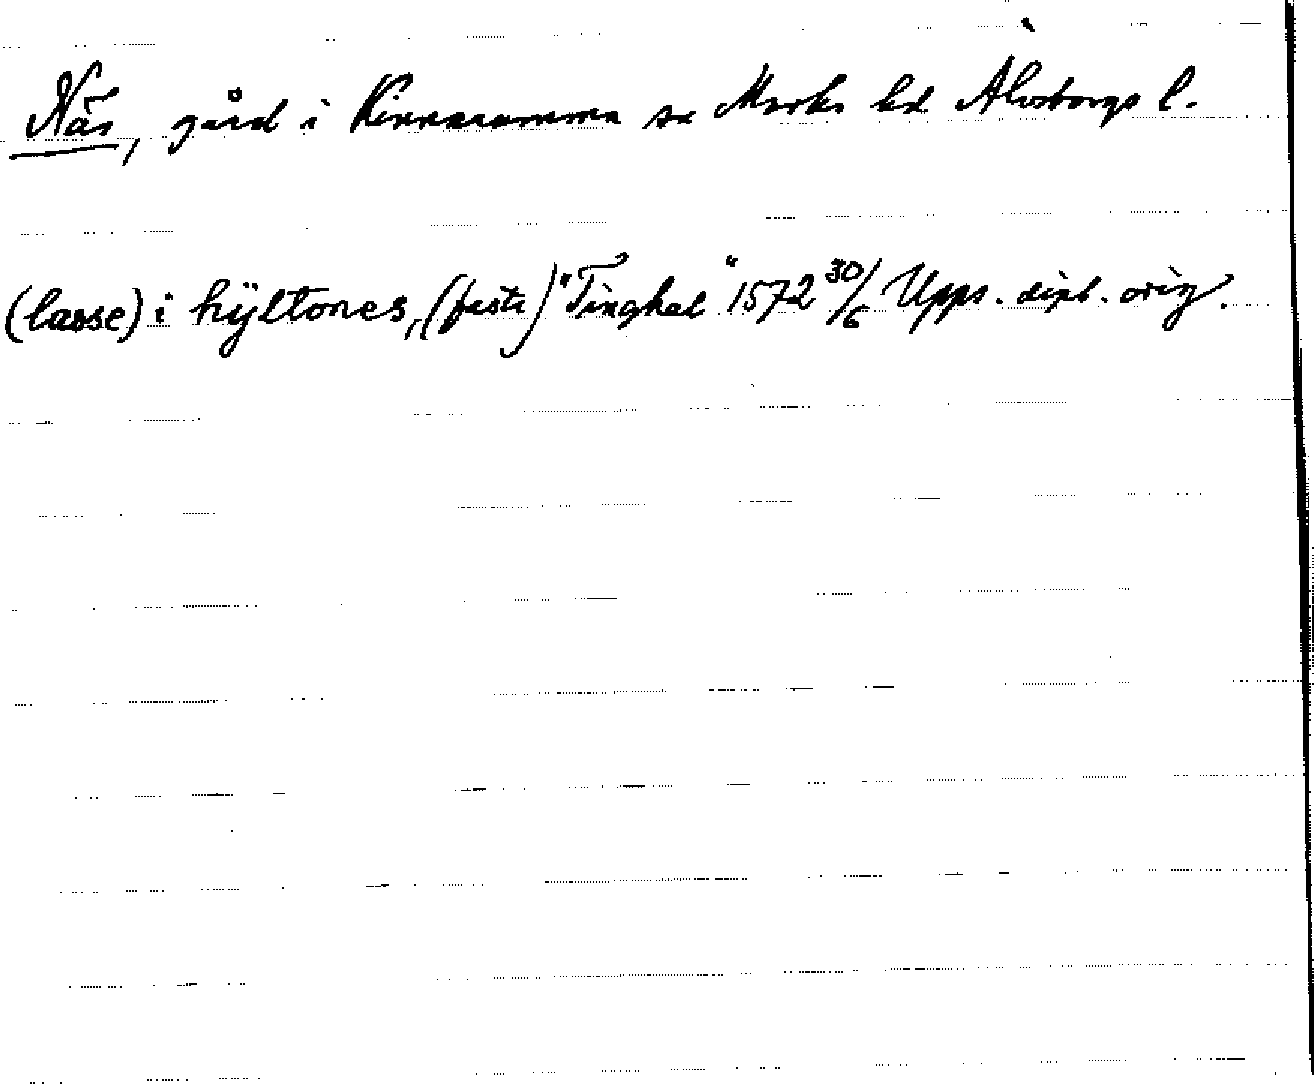 Näs, gård i Kinnarumma sn Marks hd Älvsborgs l.
(lasse) i hÿltones, (faste) "Tinghel" 1572 30/6 Upps. dipl. orig.